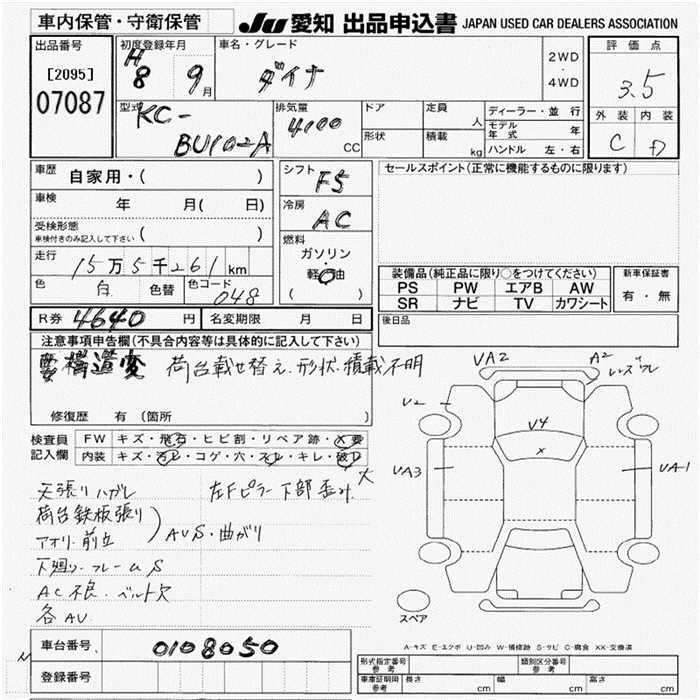 車内保管・守衛保管
JU 愛知 出品申込書 JAPAN USED CAR DEALERS ASSOCIATION
出品番号
[2095]
07087
初度登録年月
H
8 9月
車名・グレード
ダイナ
2WD
・
4WD
評価点
3.5
外装 内装
C D
型式
KC-
BU102A
排気量
4100
CC
ドア
形状
定員
人
積載
kg
ディーラー・並行
モデル年式 年
ハンドル 左・右
車歴
自家用・( )
車検
年 月( 日)
受検形態
車検付きのみ記入して下さい ( )
走行
15万5千261km
色
白
色替
色コード
048
シフト
F5
冷房
AC
燃料
ガソリン
・
軽油
( )
セールスポイント(正常に機能するものに限ります)
装備品(純正品に限り○をつけてください)
PS PW エアB AW
SR ナビ TV カワシート
新車保証書
有・無
R券 4640 円
名変期限 月 日
後日品
注意事項申告欄(不具合内容等は具体的に記入して下さい)
要構造変 荷台載せ替え.形状.積載不明
修復歴 有(箇所 )
検査員
記入欄
FW キズ・飛石・ヒビ割・リペア跡・X要
内装 キズ・汚レ・コゲ・穴・スレ・キレ・破レ
大
天張りハガレ
左Fピラー下部歪み
荷台鉄板張り
アオリ.前立
AUS・曲がり
下廻り.フレームS
AC不良.ベルト欠
各AU
VA2
A2
レンズワレ
U2
V4
X
VA3
VA-1
スペア
A-キズ E-エクボ U-凹み W-補修跡 S-サビ C-腐食 XX-交換済
車台番号 0108050
N
登録番号
形式指定番号
参考
類別区分番号
参考
車庫証明用
参考
長さ cm 幅 cm 高さ cm